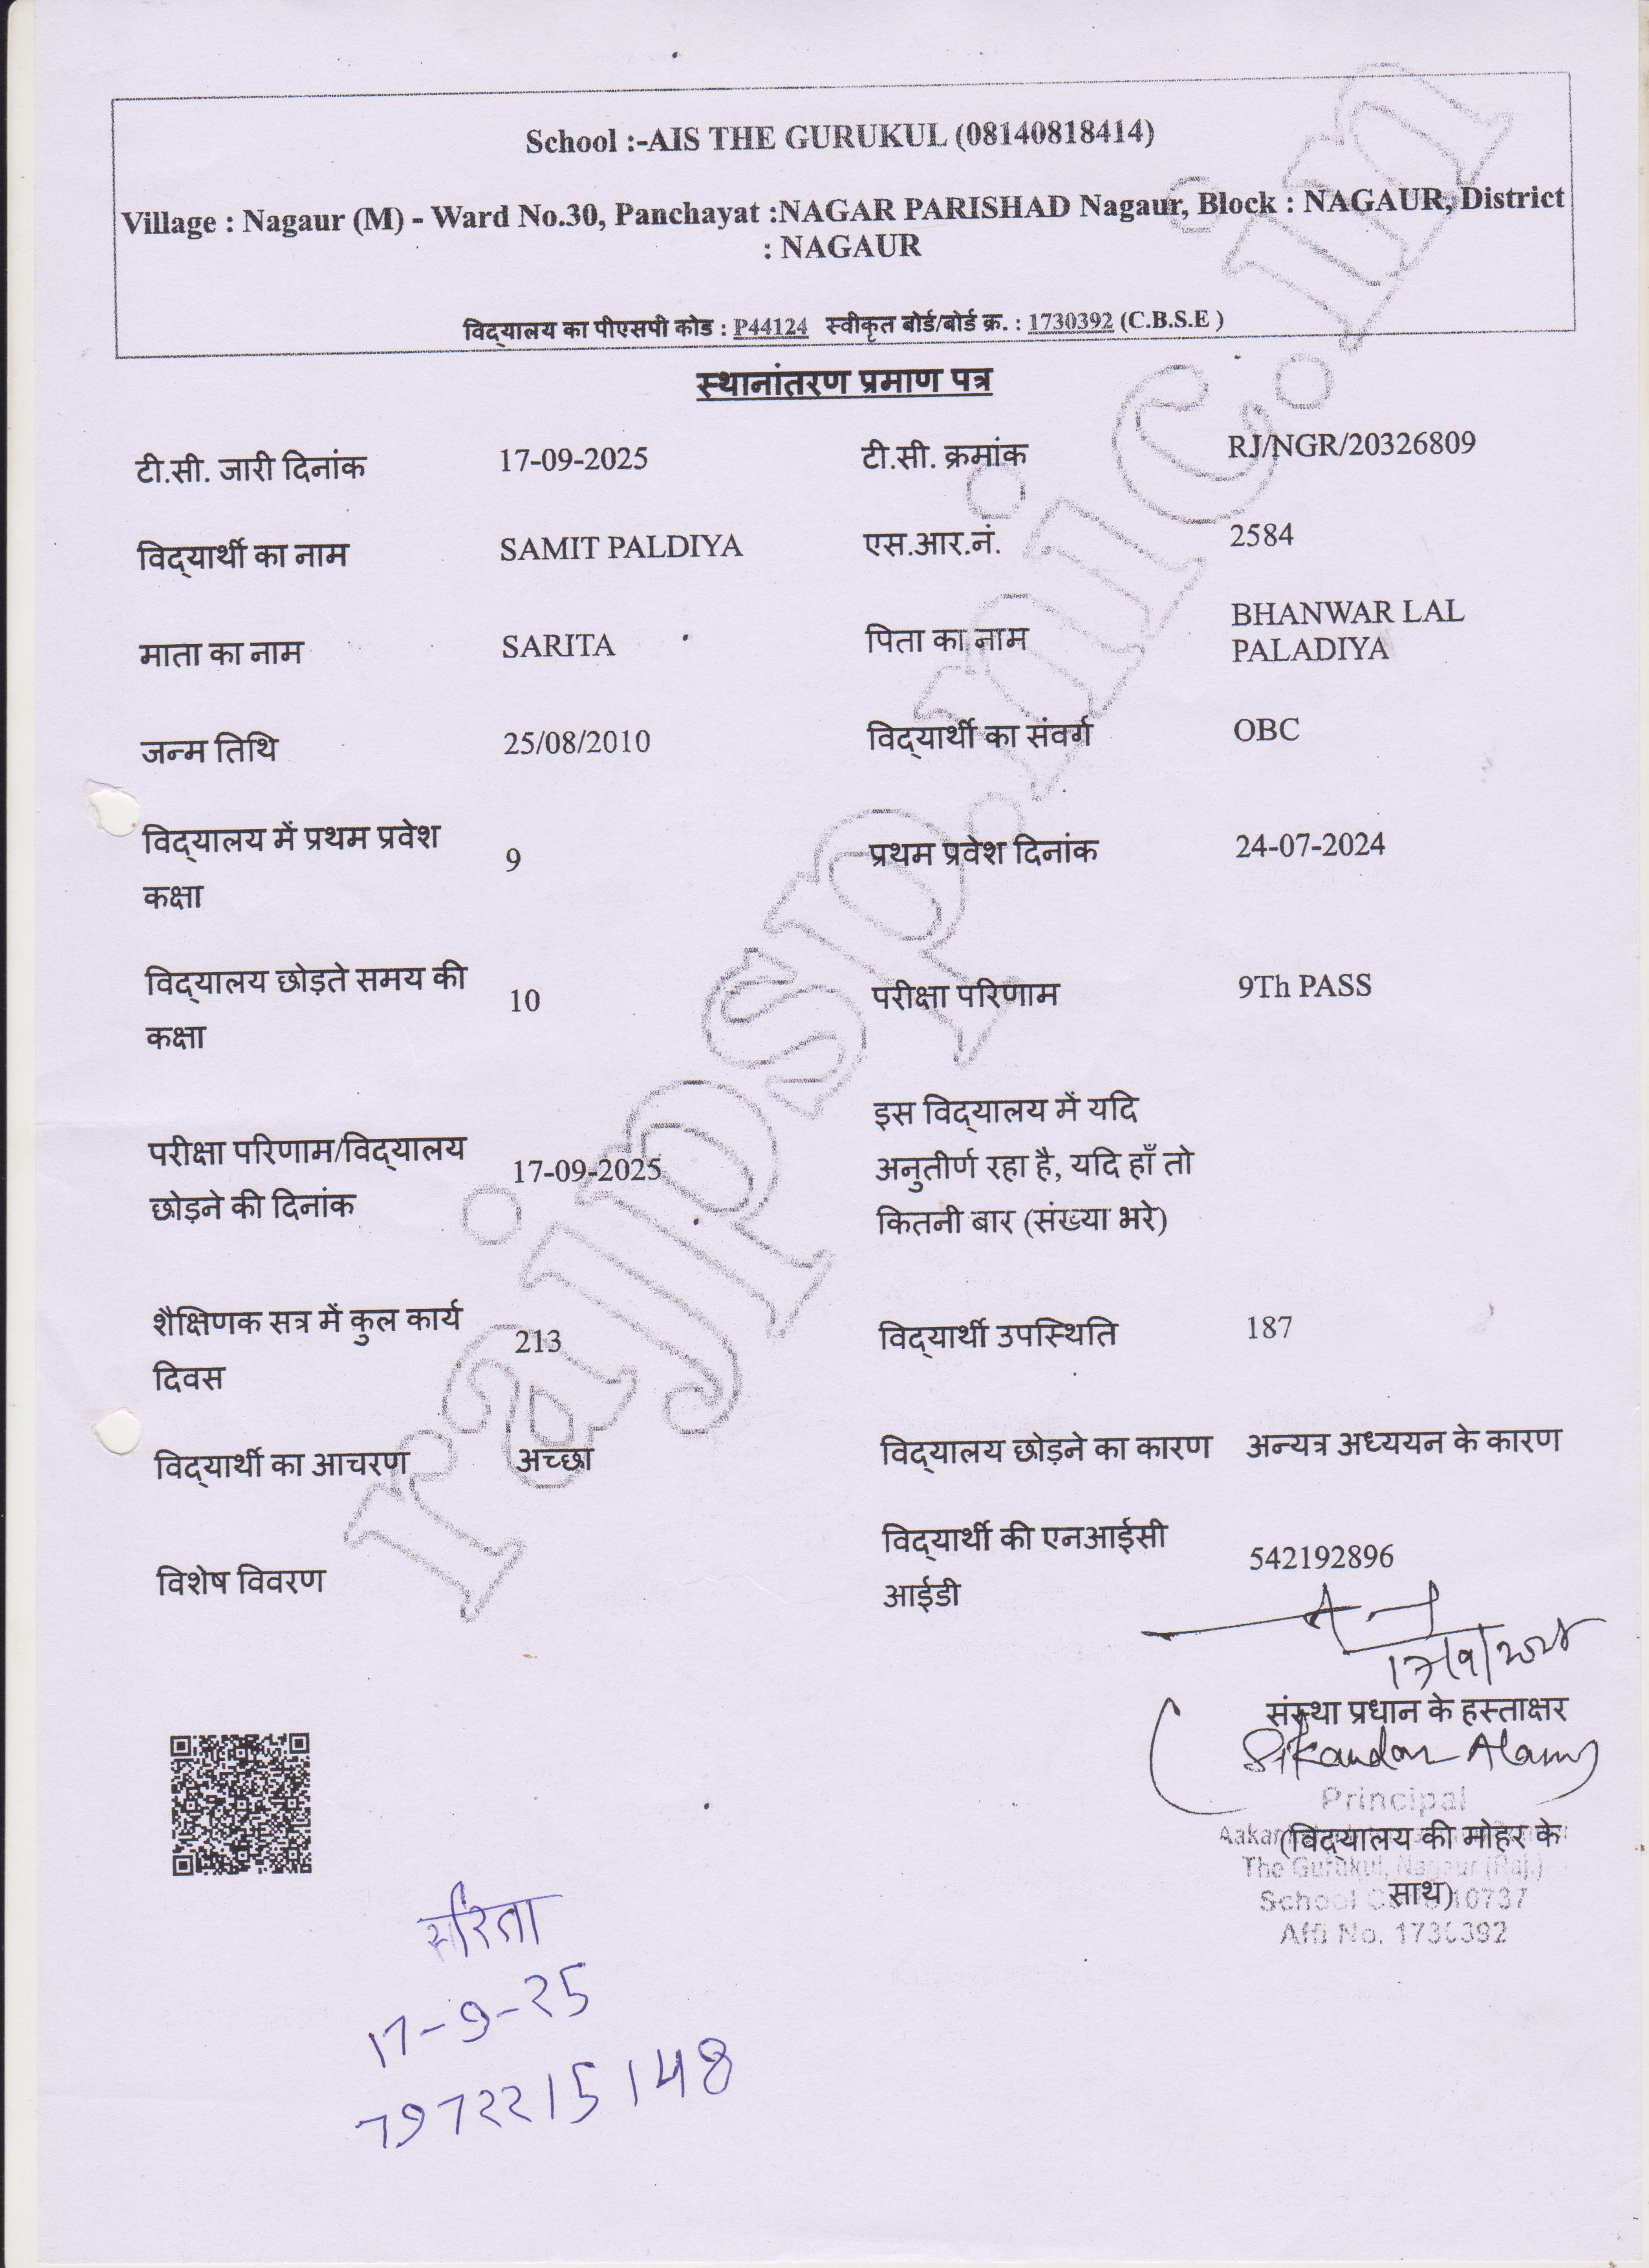 School :-AIS THE GURUKUL (08140818414)
Village : Nagaur (M) - Ward No.30, Panchayat :NAGAR PARISHAD Nagaur, Block : NAGAUR, District
: NAGAUR
विद्यालय का पीएसपी कोड : P44124 स्वीकृत बोर्ड/बोर्ड क्र. : 1730392 (C.B.S.E )
स्थानांतरण प्रमाण पत्र
टी.सी. जारी दिनांक 17-09-2025 टी.सी. क्रमांक RJ/NGR/20326809
विद्यार्थी का नाम SAMIT PALDIYA एस.आर.नं. 2584
माता का नाम SARITA पिता का नाम BHANWAR LAL
PALADIYA
जन्म तिथि 25/08/2010 विद्यार्थी का संवर्ग OBC
विद्यालय में प्रथम प्रवेश
कक्षा 9 प्रथम प्रवेश दिनांक 24-07-2024
विद्यालय छोड़ते समय की
कक्षा 10 परीक्षा परिणाम 9Th PASS
परीक्षा परिणाम/विद्यालय
छोड़ने की दिनांक 17-09-2025
इस विद्यालय में यदि
अनुतीर्ण रहा है, यदि हाँ तो
कितनी बार (संख्या भरे)
शैक्षिणक सत्र में कुल कार्य
दिवस 213 विद्यार्थी उपस्थिति 187
विद्यार्थी का आचरण अच्छा विद्यालय छोड़ने का कारण अन्यत्र अध्ययन के कारण
विशेष विवरण
विद्यार्थी की एनआईसी
आईडी 542192896
17/9/2025
संस्था प्रधान के हस्ताक्षर
Sikandar Alam
Principal
(विद्यालय की मोहर के
The Gurukul, Nagaur (Raj.)
साथ)
School Code 10737
Affi No. 1730392
सरिता
17-9-25
7972215148
rajpsp.nic.in